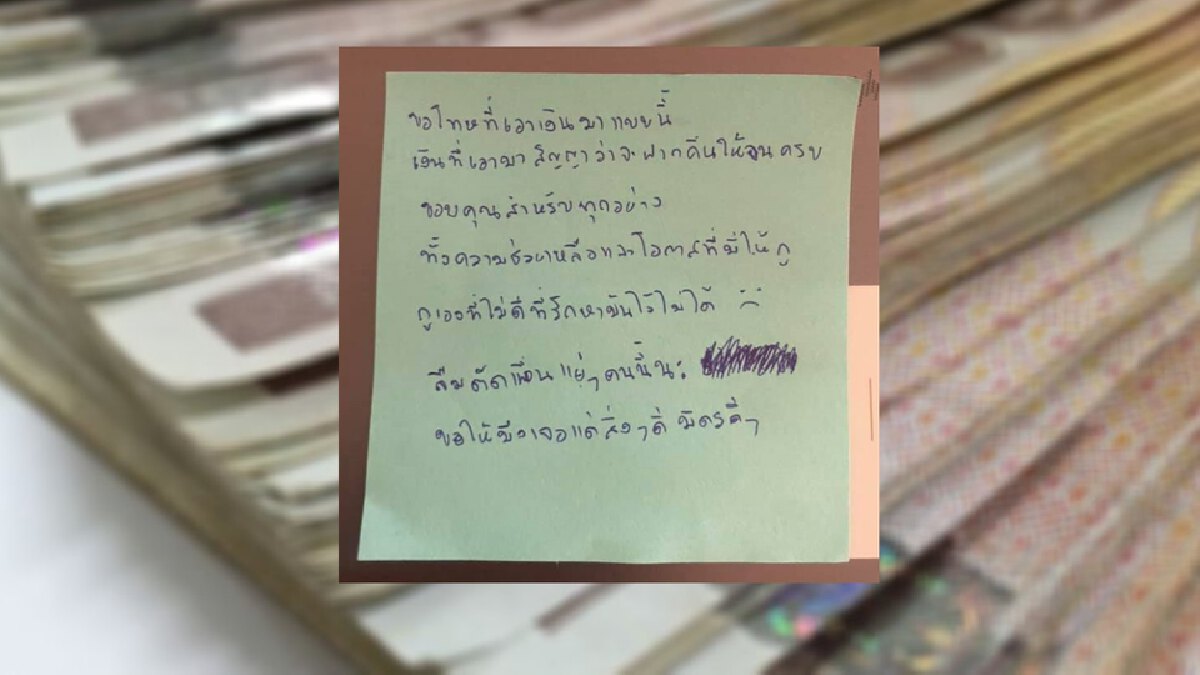 ขอโทษที่เอาเงินมาแบบนี้
เงินที่เอามา สัญญาว่าจะฝากคืนให้จนครบ
ขอบคุณสำหรับทุกอย่าง
ทั้งความช่วยเหลือและโอกาสที่มีให้กู
กูเองที่ไม่ดีที่รักษามันไว้ไม่ได้
ลืมตัดเพื่อนแย่ๆคนนี้นะ
ขอให้มึงเจอแต่สิ่งๆดี มิตรดีๆ